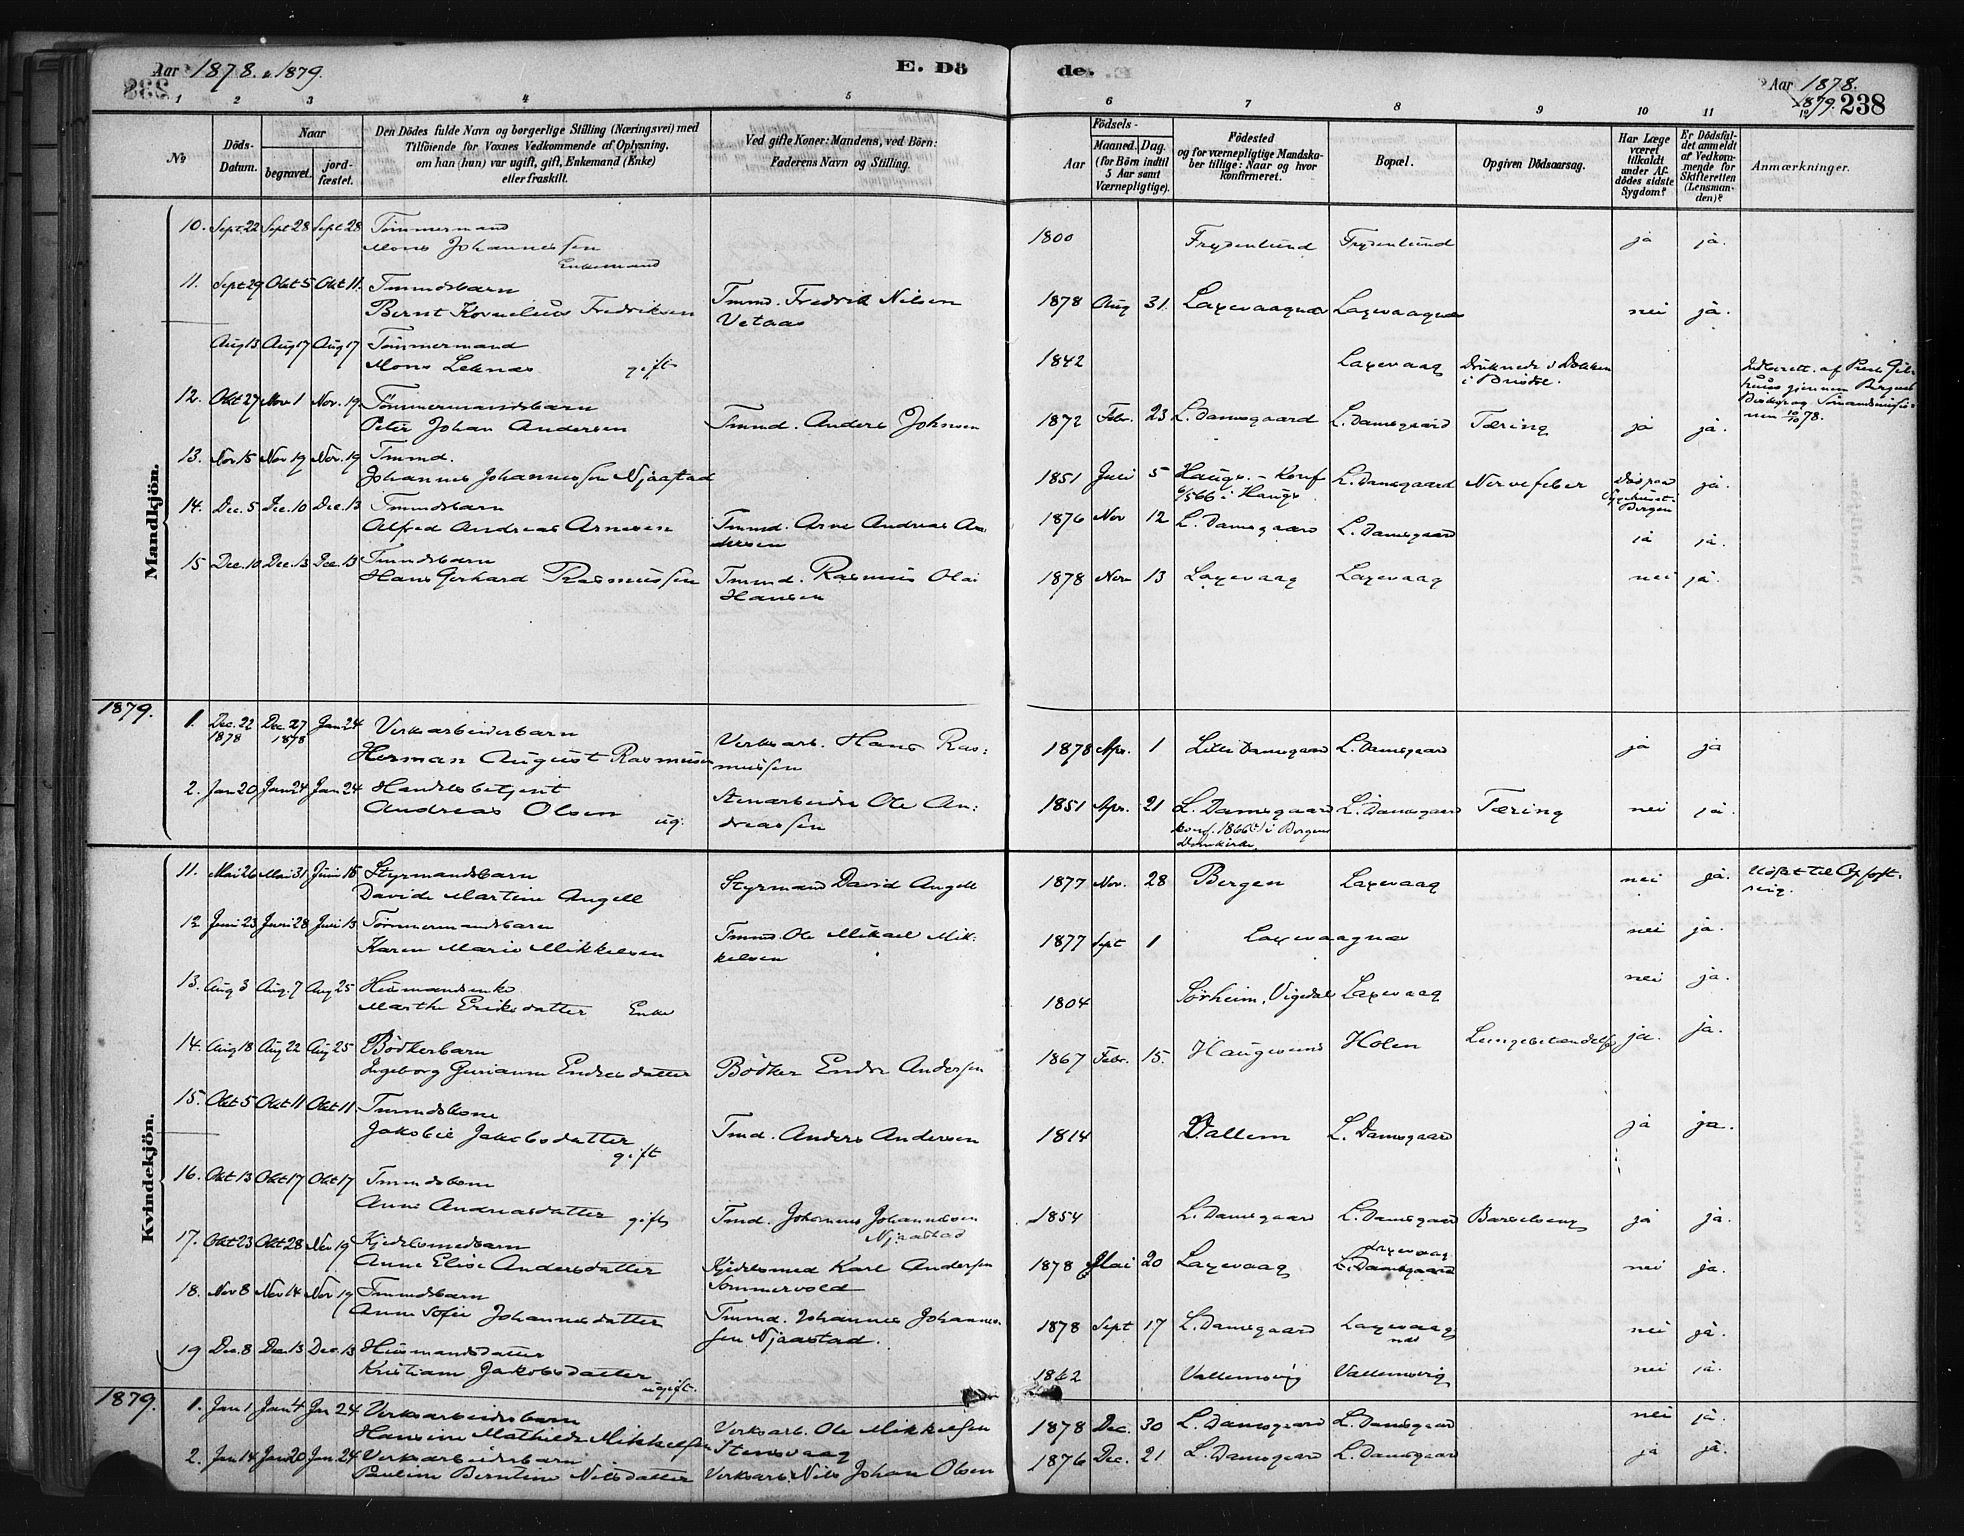 Aar 1878. & 1879.
E. Dö
de.
Aar 1878.
1879. 238
1 2 3 4 5 6 7 8 9 10 11 12
No
Döds-Datum.
Naar
begravet.
jord-fæstet.
Den Dödes fulde Navn og borgerlige Stilling (Næringsvei) med
Tilföiende for Voxnes Vedkommende af Oplysning,
om han (hun) var ugift, gift, Enkemand (Enke)
eller fraskilt.
Ved gifte Koner: Mandens, ved Börn:
Faderens Navn og Stilling.
Födsels-
Aar
Maaned. Dag.
(for Börn indtil
5 Aar samt
Værnepligtige).
Födested
og for værnepligtige Mandska-
ber tillige: Naar og hvor
konfirmeret.
Bopæl.
Opgiven Dödsaarsag.
Har Læge
været
tilkaldt
under Af-
dödes sidste
Sygdom?
Er Dödsfal-
det anmeldt
af Vedkom-
mende for
Skifteretten
(Lensman-
den)?
Anmærkninger.
Mandkjön.
10. Sept. 22 Sept 28 Sept 28 Tømmermand 1800 Frydenlund Frydenlund ja ja.
Mons Johannessen
Enkemand
11. Sept 29 Okt 5 Okt 11. Tmmdsbarn Tmmd. Fredrik Nilsen 1878 Aug 31. Laxevaagnæs Laxevaagnæs nei ja.
Bernt Kornelius Fredriksen Vetaas
Aug 13 Aug 17 Aug 17 Tømmermand 1842 Laxevaag Druknede i Dokken
Mons Leknæs gift
12. Okt 27 Nov 1 Nov. 19 Tømmermandsbarn 1872 Febr. 23 L. Damsgaard L. Damsgaard Tæring ja ja.
Peter Johan Andersen Tmmd. Anders Johnsen
13. Nov 15 Nov 19 Nov. 19 Tmmd. 1851 Juli 5 Haugs. - Konf L. Damsgaard Nervefeber Død paa ja.
Johannes Johannessen Njaastad Sygehuset
Bergen
14. Dec. 5 Dec. 10 Dec. 13 Tmmdsbarn 1876 Nov 12 L. Damsgaard L. Damsgaard ja ja.
Alfred Andreas Arnesen Tmmd. Arne Andreas An
dersen
15 Dec. 10 Dec. 13 Dec. 13 Tmmdsbarn 1878 Nov 13 Laxevaag Laxevaag nei ja.
Hans Gerhard Rasmussen Tmmd. Rasmus Olai
Hansen
1879.
1. Dec. 22 Dec. 27 Jan 24 Verksarbeiderbarn Verksarb. Hans Ras: 1878 Apr. 1 Lille Damsgaard L. Damsgaard ja ja
1878 1878 Herman August Rasmussen mussen
2. Jan 20 Jan 24 Jan 24 Handelsbetjent Stenarbeider Ole An: 1851 Apr. 21 L. Damsgaard L. Damsgaard Tæring nei ja.
Andreas Olsen ug. dreassen
Domkirke.
Kvindekjön.
11. Mai 26 Mai 31 Juni 15 Styrmandsbarn Styrmand David Angell 1877 Nov. 28 Bergen Laxevaag nei ja.
Davida Martine Angell
12 Juni 23 Juni 28 Juli 13 Tømmermandsbarn Tmmd. Ole Mikael Mik- 1877 Sept 1 Laxevaagnæs nei ja.
Karen Marie Mikkelsen kelsen
13. Aug 3 Aug. 7 Aug 25 Husmandsenke 1804 Sørheim, Vigedal Laxevaag nei ja.
Marthe Eriksdatter Enke
14. Aug 18 Aug 22 Aug 25 Bødkerbarn 1867 Febr. 15. Haugesund Holen Lungebetændelse ja. ja.
Ingeborg Gurianne Endresdatter Bødker Endre Andersen
15. Okt 5 Okt 11 Okt 11. Tmmdskone 1814 Vallem L. Damsgaard ja ja.
Jakobie Jakobsdatter Tmd. Anders Andersen
gift
16. Okt 13 Okt 17 Okt 17 Tmmdskone 1854 L. Damsgaard L. Damsgaard Barselseng ja ja.
Anne Andreasdatter gift Tmd. Johannes Johannessen
Njaastad
17. Okt 23 Okt 28 Nov 19 Kjedelsmedbarn 1878 Mai 20 Laxevaag Laxevaag nei ja.
Anne Elise Andersdatter Kjedelsmed Karl Andersen L. Damsgaard
Sommervold
18. Nov 8 Nov 14 Nov 19 Tmmdsbarn Tmmd. Johannes Johannes- 1878 Sept 17 L. Damsgaard Laxevaag nei ja.
Anne Sofie Johannesdatter sen Njaastad. næs
19 Dec. 8 Dec. 13 Dec. 13 Husmandsdatter 1862 Vallemsvig Vallemsvig nei ja.
Kristiane Jakobsdatter
ugift.
1879.
1. Jan 1 Jan 4 Jan 24 Verksarbeidsbarn Verksarb. Ole Mikkelsen 1878 Dec. 30 L. Damsgaard L. Damsgaard nei ja.
Hansine Mathilde Mikkelsen Stensvaag
2. Jan 14 Jan 20 Jan. 24 Verksarbeidsbarn 1876 Dec. 21 L. Damsgaard L. Damsgaard ja ja.
Pauline Berntine Nilsdatter Verksarb. Nils Johan Olsen